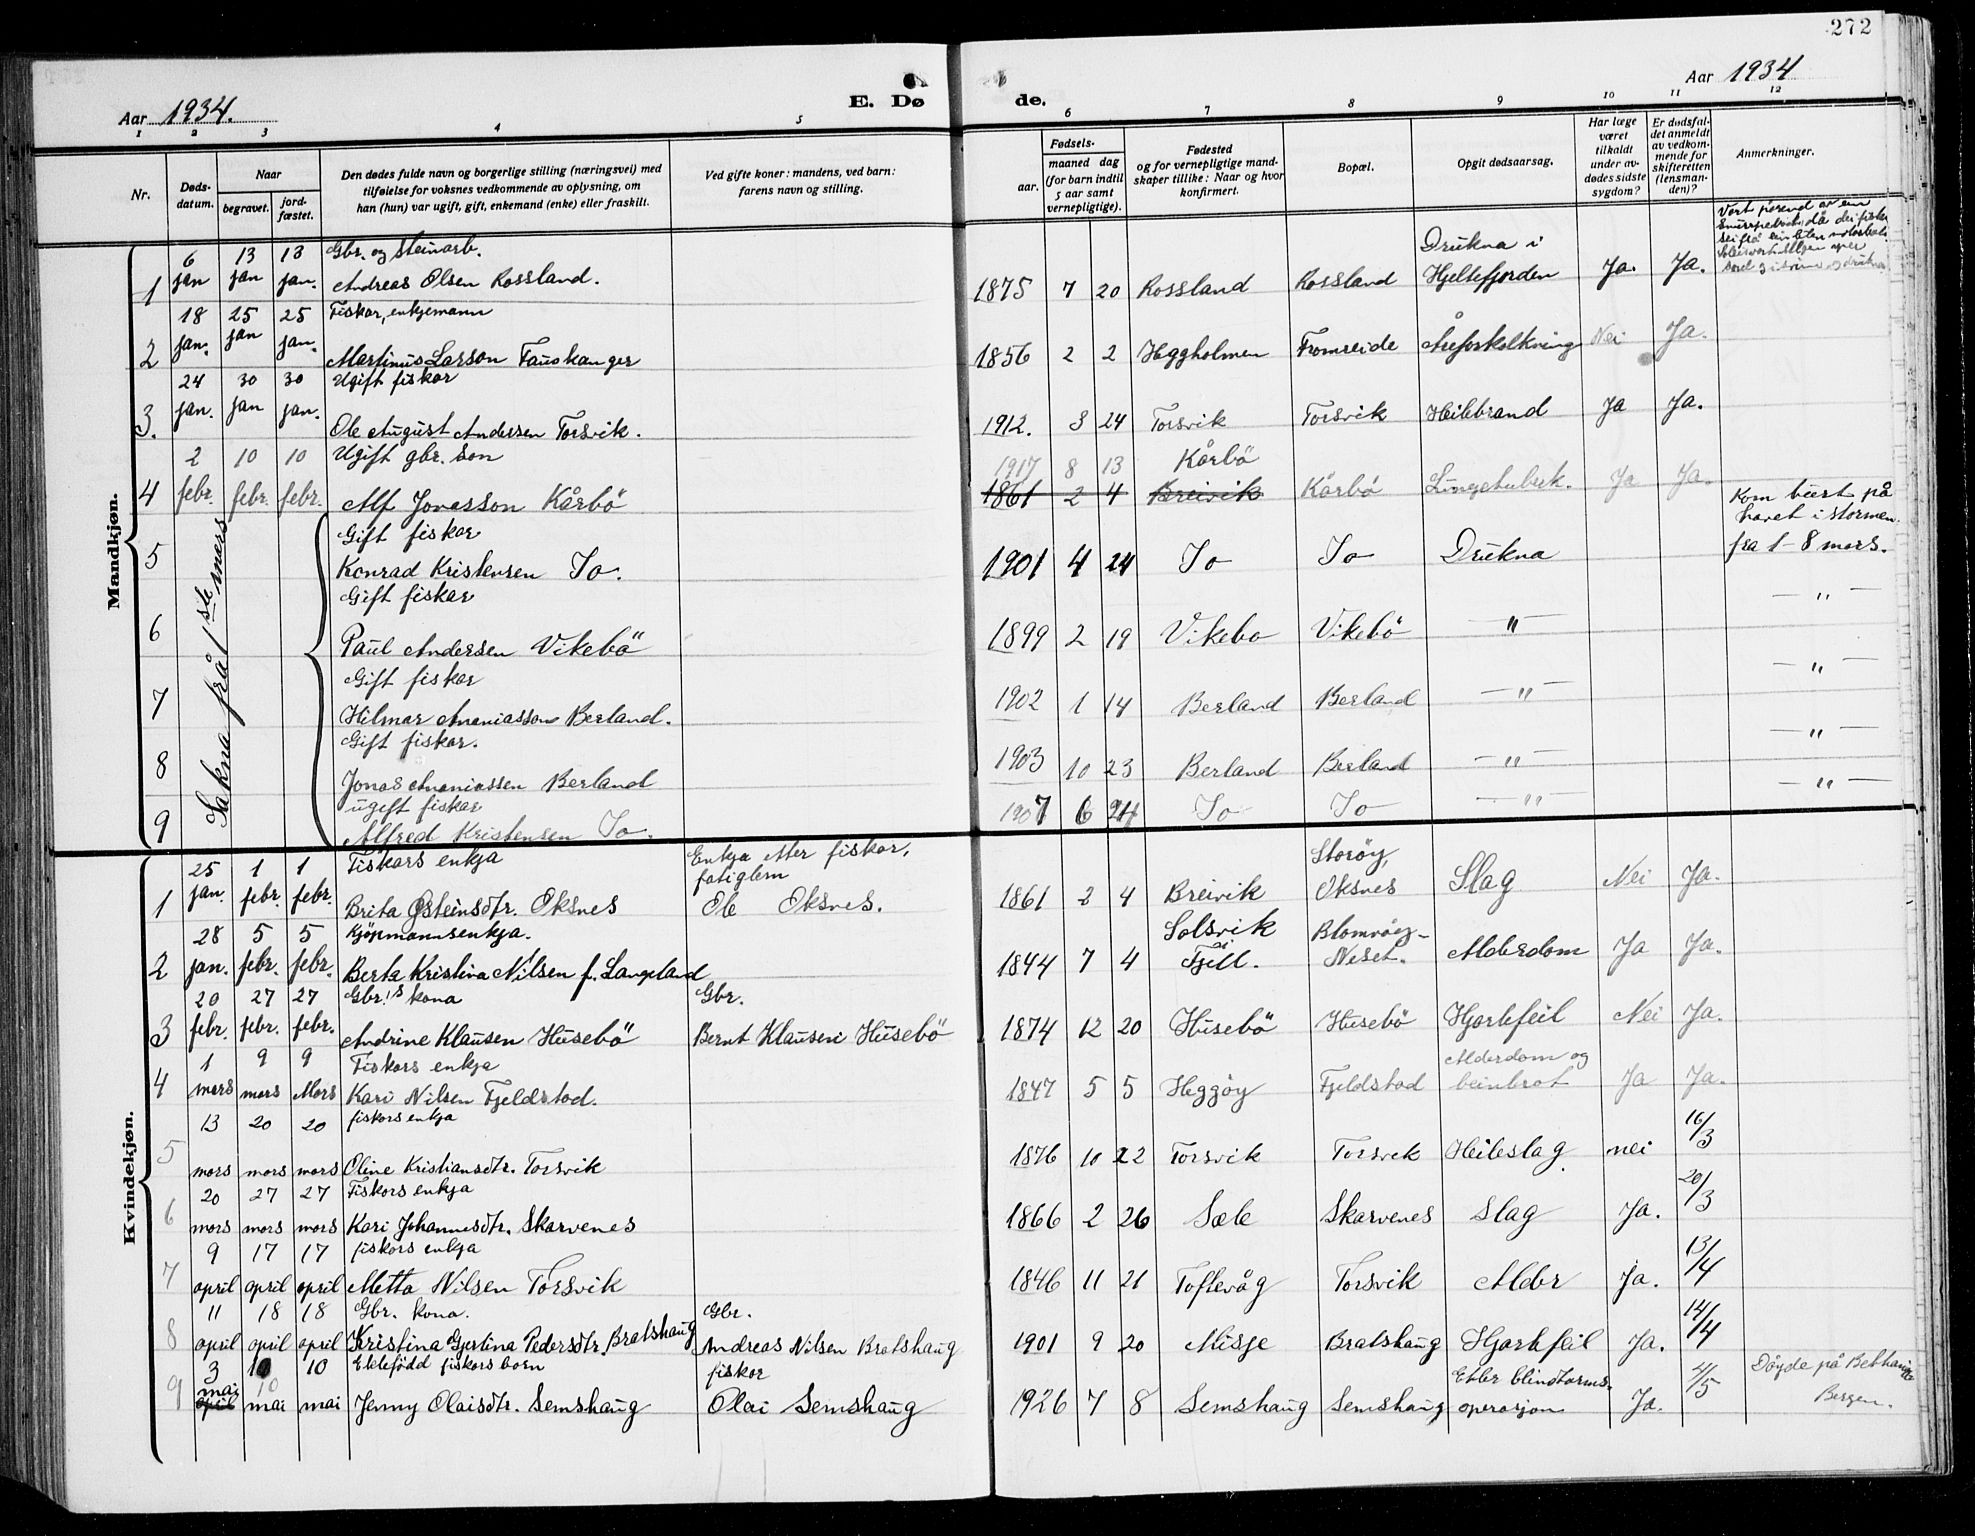 272
Aar 1934.
E. Døde.
Aar 1934
1 2 3 4 5 6 7 8 9 10 11 12
Nr.
Døds-datum.
Naar
begravet.
jord-fæstet.
Den dødes fulde navn og borgerlige stilling (næringsvei) med
tilføielse for voksnes vedkommende av oplysning, om
han (hun) var ugift, gift, enkemand (enke) eller fraskilt.
Ved gifte koner: mandens, ved barn:
farens navn og stilling.
Fødsels-
aar.
maaned dag
(for barn indtil
5 aar samt
vernepligtige).
Fødested
og for vernepligtige mand-
skaper tillike: Naar og hvor
konfirmert.
Bopæl.
Opgit dødsaarsag.
Har læge
været
tilkaldt
under av-
dødes sidste
sygdom?
Er dødsfal-
det anmeldt
av vedkom-
mende for
skifteretten
(lensman-
den)?
Anmerkninger.
Mandkjøn.
6 13 13 Gbr. og Steinarb. Drukna i
1 jan jan jan. Andreas Olsen Rossland. 1875 7 20 Rossland Rossland Hjeltefjorden Ja. Ja.
18 25 25 Fiskar, enkjemann
2 jan. jan jan. Martinus Larson Fauskanger 1856 2 2 Heggholmen Fromreide Åreforkalkning Nei Ja.
24 30 30 Ugift fiskar
3. jan. jan jan. Ole August Andersen Torsvik. 1912. 3 24 Torsvik Torsvik Heilebrand Ja Ja.
2 10 10 Ugift gbr. son 1917 8 13 Kårbö
4 febr. febr. febr. Alf Jonasson Kårbö 1861 2 4 Breivik Kårbö Lungetuberk. Ja Ja.
Sakna frå 1ste mars
Gift fiskar
5 Konrad Kristensen Io. 1901 4 24 Io Io Drukna
Kom burt på
havet i stormen
fra 1-8 mars.
Gift fiskar
6 Paul Andersen Vikebö 1899 2 19 Vikebo Vikebö " — " —
Gift fiskar
7 Hilmar Ananiasson Berland. 1902 1 14 Berland Berland — " — — " —
Gift fiskar.
8 Jonas Ananiassen Berland 1903 10 23 Berland Berland — " — — " —
ugift fiskar
9 Alfred Kristensen Io. 1907 6 24 Io Io — " — — " —
Kvindekjøn.
25 1 1 Fiskars enkja Enkja etter fiskar, fatiglem Storöy,
1 jan. febr. febr. Brita Østeinsdtr. Oksnes Ole Oksnes. 1861 2 4 Breivik Oksnes Slag Nei Ja.
28 5 5 Kjöpmannsenkja. Solsvik i Blomvöy-
2 jan. febr. febr. Berta Kristina Nilsen f. Langeland 1844 7 4 Fjell. Neset. Alderdom Ja Ja.
20 27 27 Gbr.'s kona Gbr.
3 febr. febr. febr. Andrine Klausen Husebö Bernt Klausen Husebö 1874 12 20 Husebö Husebö Hjartefeil Nei Ja.
1 9 9 Fiskars enkja Alderdom og
4 mars mars Mars Kari Nilsen Fjeldstad. 1847 5 5 Heggöy Fjeldstad beinbrot Ja Ja.
13 20 20 fiskars enkja
5 mars mars mars Oline Kristiansdtr. Torsvik 1876 10 22 Torsvik Torsvik Heileslag. nei 16/3
20 27 27 Fiskars enkja
6 mars mars mars Kari Johannesdtr. Skarvenes 1866 2 26 Sæle Skarvenes Slag Ja. 20/3
9 17 17 fiskars enkja
7 april april april Metta Nilsen Torsvik 1846 11 21 Toftevåg Torsvik Alder Ja. 13/4
11 18 18 Gbr. kona. Gbr.
8 april april april Kristina Gjertina Pedersdtr. Bratshaug Andreas Nilsen Bratshaug 1901 9 20 Misje Bratshaug Hjartefeil Ja. 14/4
3 10 10 Ektefödd fiskars born fiskar Etter blindtarms-
9 mai april 10 mai mai Jenny Olaisdtr. Semshaug Olai Semshaug 1926 7 8 Semshaug Semshaug operasjon Ja. 4/5
Döyde på Bethania
Bergen.